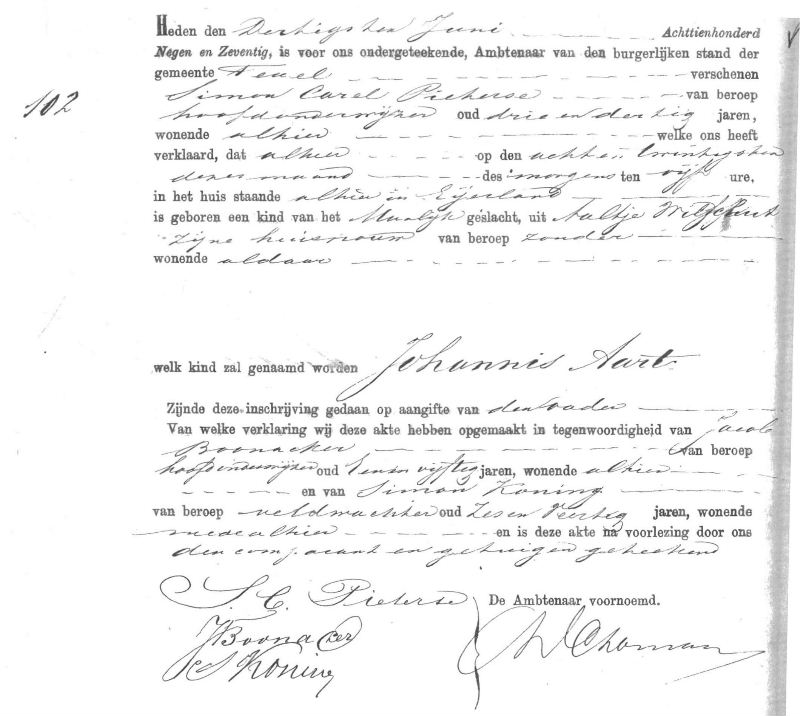 Heden den Dertigsten Juni Achttienhonderd
Negen en Zeventig, is voor ons ondergeteekende, Ambtenaar van den burgerlijken stand der
gemeente Texel verschenen
102
Simon Carel Pieterse van beroep
hoofdonderwijzer oud drie en dertig jaren,
wonende alhier welke ons heeft
verklaard, dat alhier op den acht en twintigsten
dezer maand des morgens ten vijf ure,
in het huis staande alhier in Eijerland
is geboren een kind van het Manlijk geslacht, uit Aaltje
zijne huisvrouw van beroep zonder
wonende aldaar
welk kind zal genaamd worden Johannis Aart
Zijnde deze inschrijving gedaan op aangifte van den vader
Van welke verklaring wij deze akte hebben opgemaakt in tegenwoordigheid van Jacob
Boonacker van beroep
hoofdonderwijzer oud Een en vijftig jaren, wonende alhier
en van Simon Koning
van beroep veldwachter oud Zes en Veertig jaren, wonende
mede alhier en is deze akte na voorlezing door ons
den comparant en getuigen geteekend
S. C. Pieterse De Ambtenaar voornoemd.
JBoonacker
S Koning